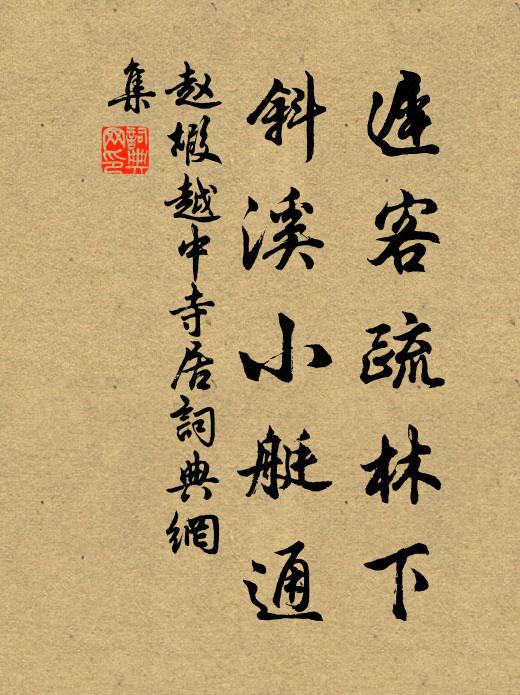 遲客疏林下
斜溪小艇通
赵嘏越中寺居詞典網
集
詞典
网印